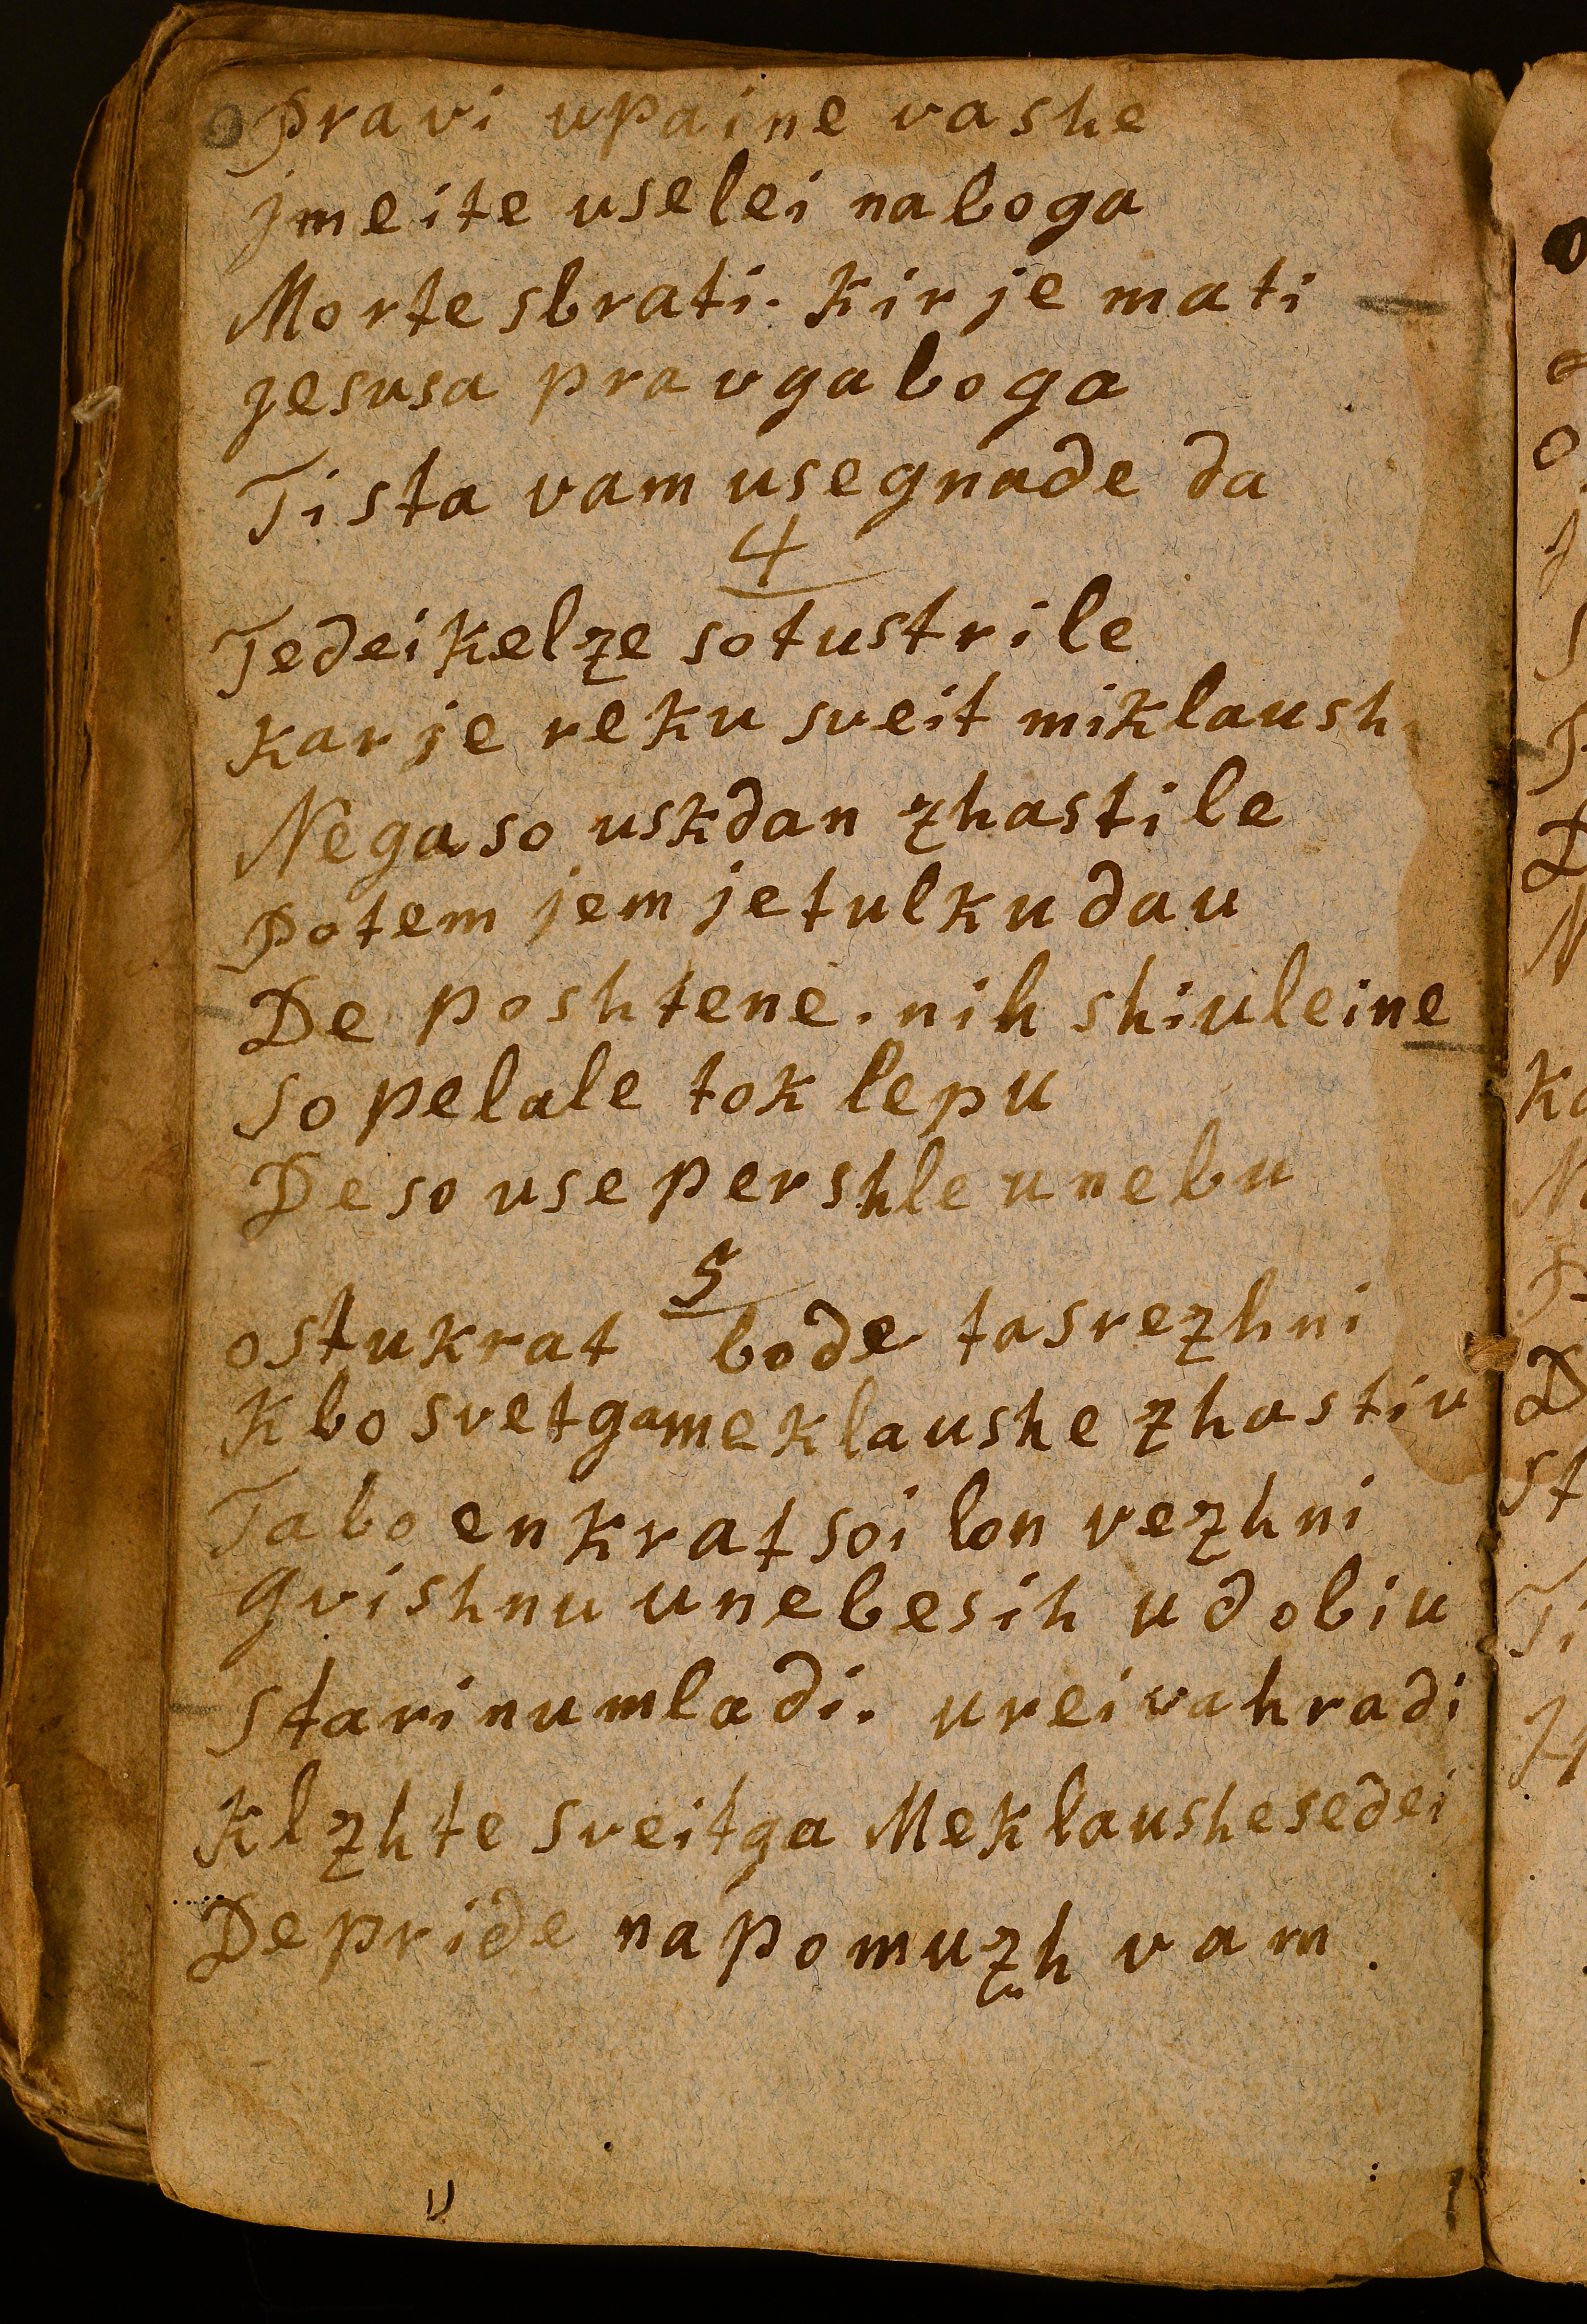 Pravi upaine vashe
jmeite uselei naboga
Morte sbrati. kir je mati
jesusa pravga boga
Tista vam use gnade da
4
Tedei kelze so tustrile
kar je reku sveit miklaush
Nega so uskdan zhastile
Potem jem je tulku dau
De poshtene. nih shiuleine
so pelale tok lepu
De so use pershle u nebu
5
ostukrat bode ta srezhni
k bo svetga meklaushe zhastiu
Ta bo enkrat soi lon vezhni
gvishnu u nebesih udobiu
stari nu mladi. urei vahradi
klzhte sveitga Meklaushe sedei
De pride na pomuzh vam.